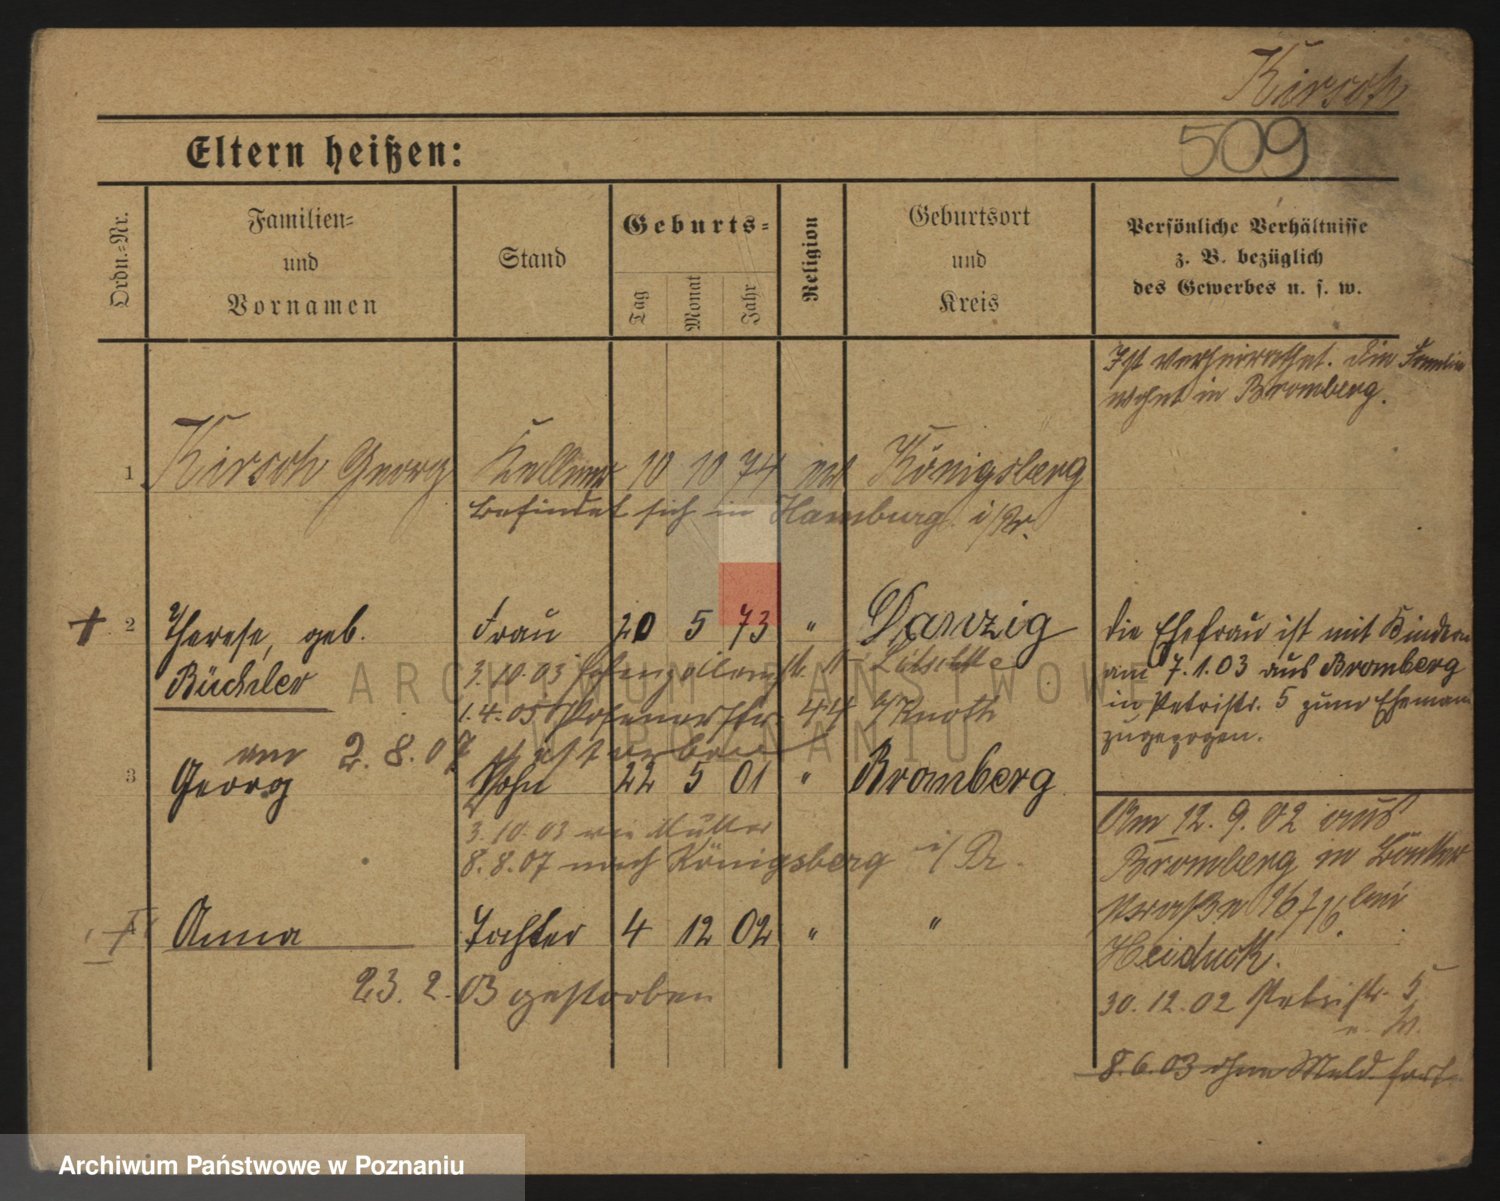 Kirsch
509
Eltern heißen:
Ordn.-Nr.
Familien-
und
Vornamen
Stand
Geburts-
Tag
Monat
Jahr
Religion
Geburtsort
und
Kreis
Persönliche Verhältnisse
z. B. bezüglich
des Gewerbes u. s. w.
Ist verheirathet. Die Familie
wohnt in Bromberg.
1 Kirsch Georg Kellner 10 10 74 ev Königsberg
befindet sich in Hamburg i/Pr.
2 Therese, geb. Frau 20 5 73 " Danzig
Büchler
3.10.03 Hohenzollernstr.
1.4.05 Posenerstr. 44 b/Knoth
am 2.8.07 gestorben
Die Ehefrau ist mit Kindern
am 7.1.03 aus Bromberg
in Petristr. 5 zum Ehemann
zugezogen.
3 Georg Sohn 22 5 01 " Bromberg
3.10.03 wie Mutter
8.8.07 nach Königsberg i/Pr.
Anna Tochter 4 12 02 " "
23.2.03 gestorben
Am 12.9.02 aus
Bromberg in
straße bei
Heiduck.
30.12.02 Petristr. 5
8.6.03 ohne Meld. fort
ARCHIWUM PAŃSTWOWE
W POZNANIU
Archiwum Państwowe w Poznaniu